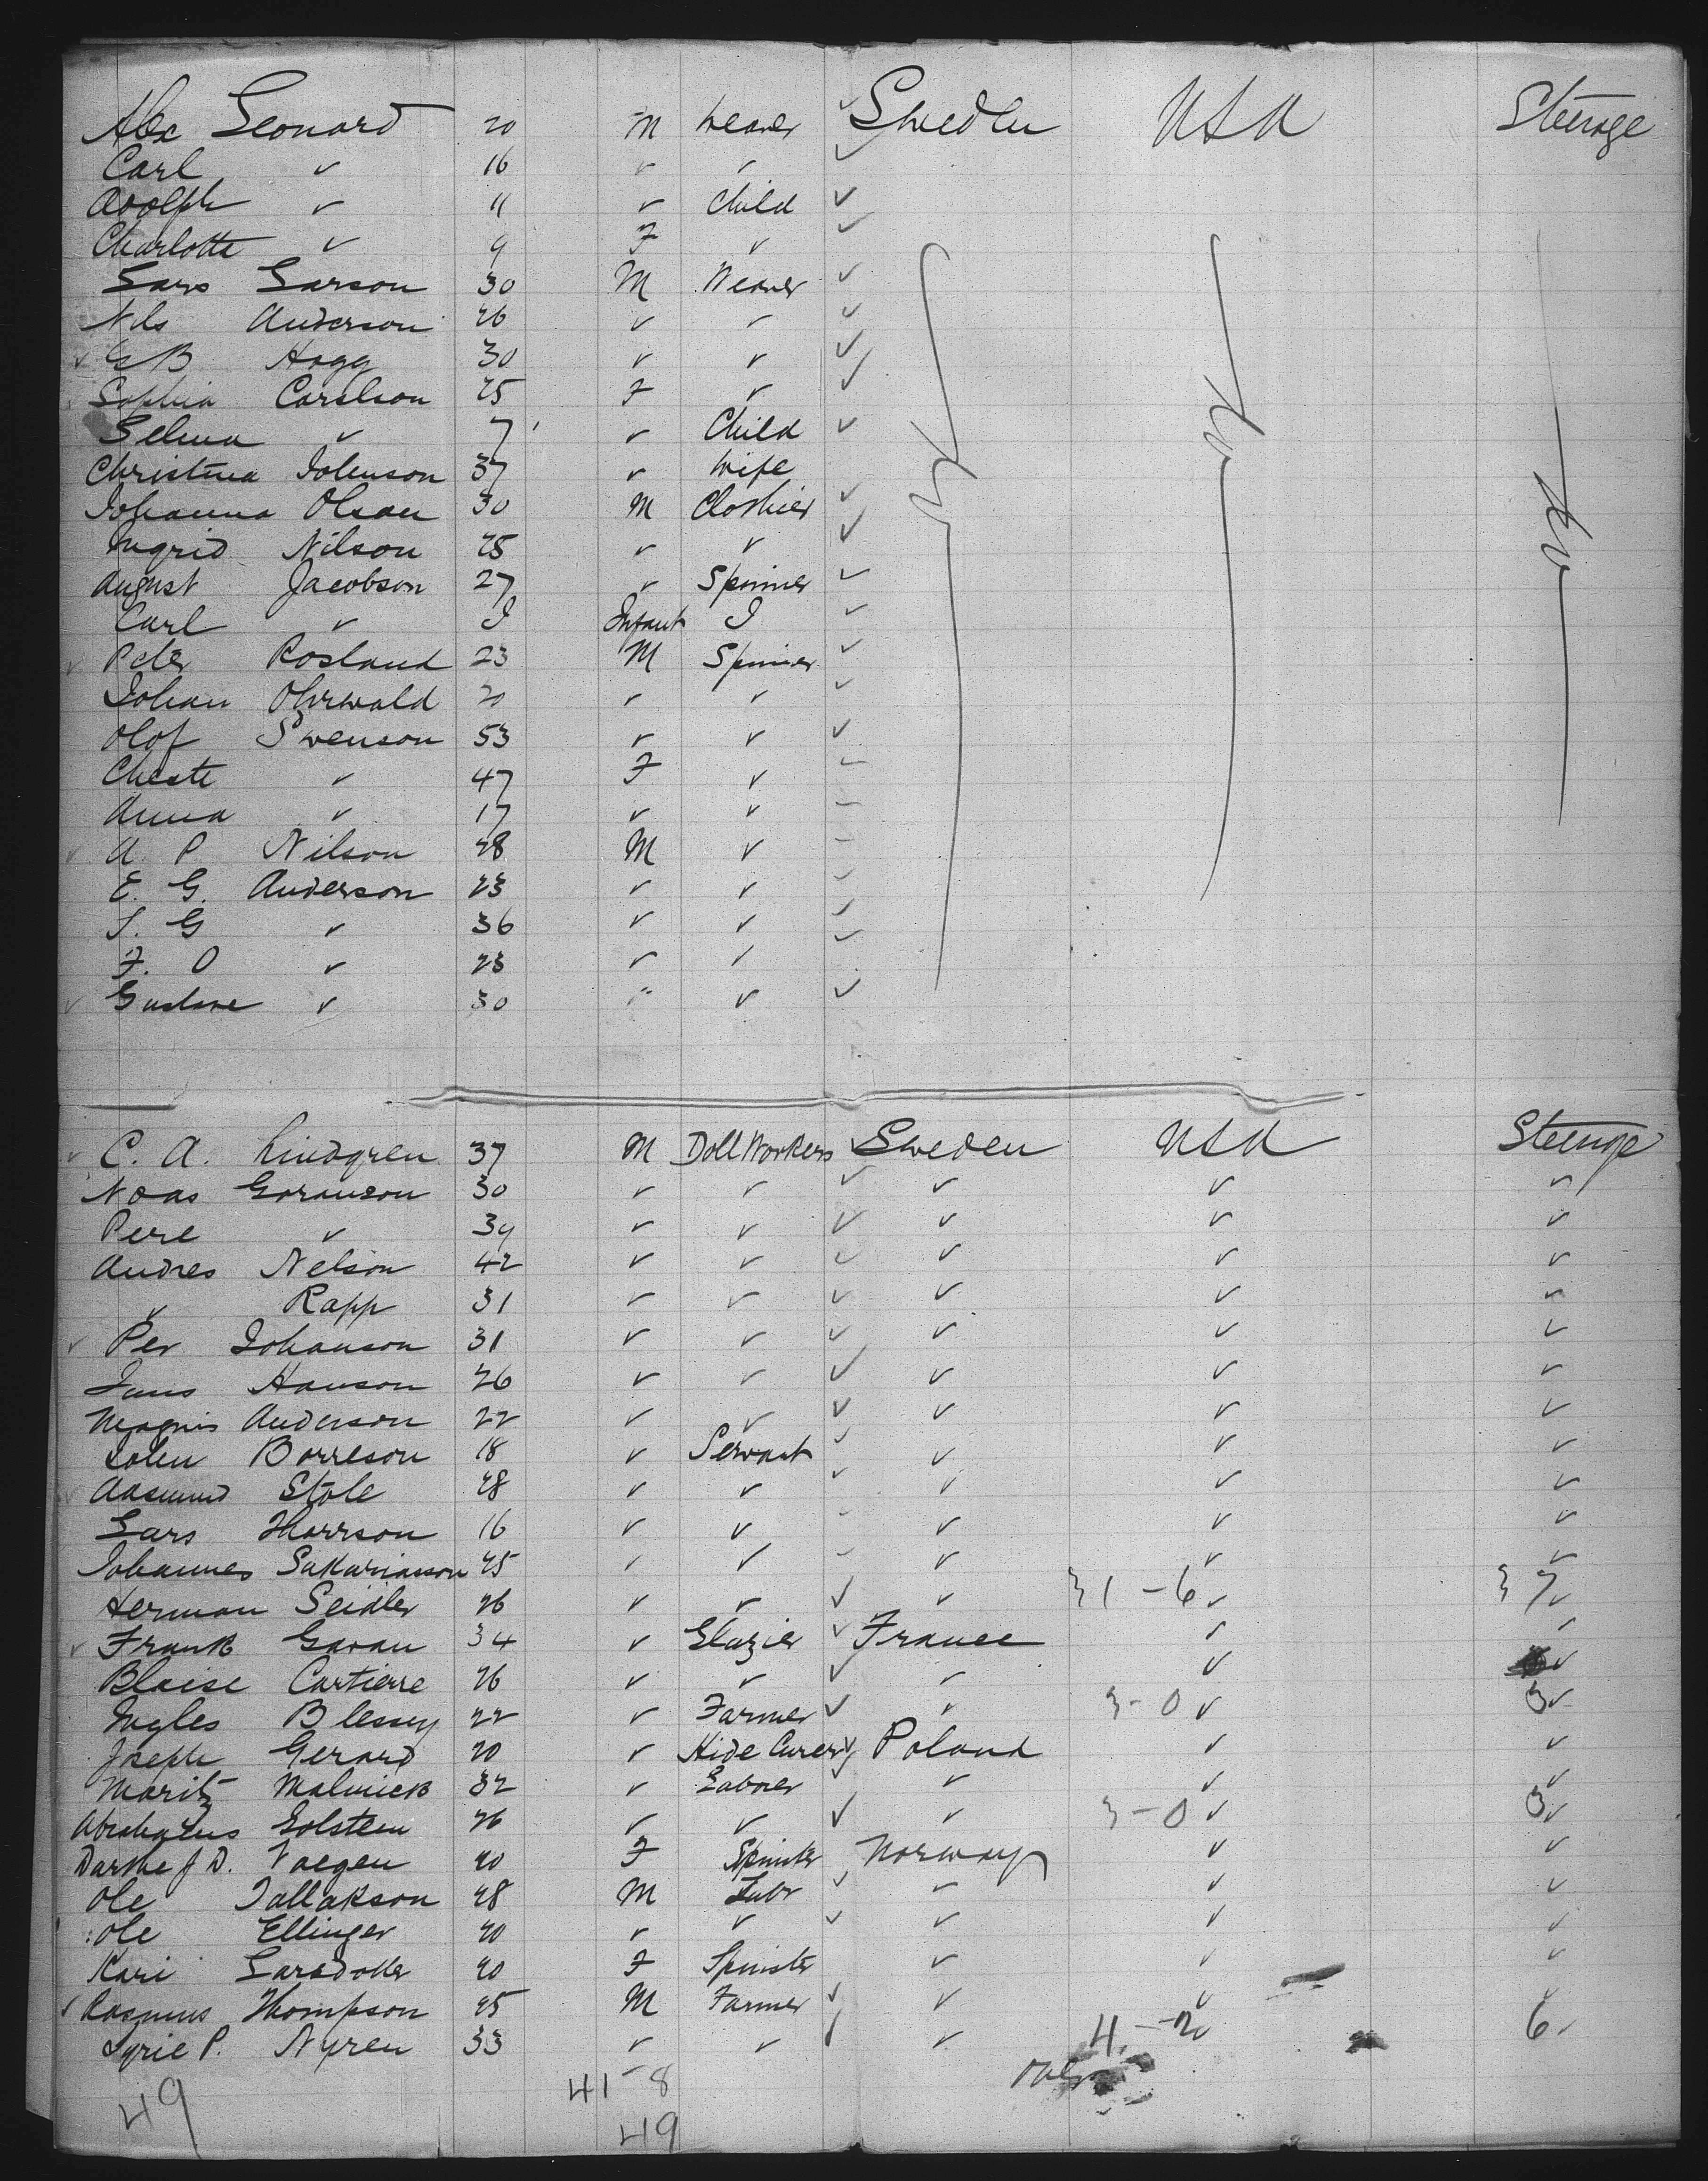 Alex Leonard 20 M Weaver ✓ Sweden USA Steerage
Carl ✓ 16 ✓ ✓ ✓
Adolph ✓ 11 ✓ Child ✓
Charlotte ✓ 9 F ✓ ✓
Lars Larson 30 M Weaver ✓
Nils Anderson 26 ✓ ✓ ✓
✓ B Hogg 30 ✓ ✓ ✓
Sophia Carelson 25 F ✓ ✓
Selma ✓ 7 ✓ Child ✓
Christina Johnson 37 ✓ Wife
Johanna Olsan 30 M Clothier ✓
Ingrid Nilson 25 ✓ ✓ ✓
August Jacobson 27 ✓ Spinner ✓
Carl ✓ I Infant I ✓
✓ Peter Rosland 23 M Spinner ✓
Johan Ohrwald 20 ✓ ✓ ✓
Olof Swenson 53 ✓ ✓ ✓
✓ 47 F ✓
Anna ✓ 17 ✓ ✓
✓ A. P. Nilson 28 M ✓
E. G. Anderson 23 ✓ ✓ ✓
S. G ✓ 36 ✓ ✓ ✓
F. O ✓ 23 ✓ ✓ ✓
✓ Gustave ✓ 30 " ✓ ✓
✓ C. A. Lindgren 37 M Doll Workers ✓ Sweden USA Steerage
Noas Goranson 30 ✓ ✓ ✓ ✓ ✓ ✓
Pere ✓ 39 ✓ ✓ ✓ ✓ ✓ ✓
Andres Nelson 42 ✓ ✓ ✓ ✓ ✓ ✓
✓ Rapp 31 ✓ ✓ ✓ ✓ ✓ ✓
✓ Per Johanson 31 ✓ ✓ ✓ ✓ ✓ ✓
Hanson 26 ✓ ✓ ✓ ✓ ✓ ✓
Magnis Anderson 22 ✓ ✓ ✓ ✓ ✓ ✓
John Borreson 18 ✓ Servant ✓ ✓ ✓ ✓
✓ Aasmund Stole 28 ✓ ✓ ✓ ✓ ✓ ✓
Lars Thorrson 16 ✓ ✓ ✓ ✓ ✓
Johannes Sakariasson 25 ✓ ✓ ✓ ✓ ✓
Herman Seidler 26 ✓ ✓ ✓ ✓ 31-6 ✓ 37 ✓
✓ Frank Gavan 34 ✓ Glazier ✓ France ✓ ✓
Blaise Cartierre 26 ✓ ✓ ✓ ✓ ✓ ✓
Ingles Blessey 22 ✓ Farmer ✓ ✓ 3-0 ✓ 3 ✓
Joseph Gerard 20 ✓ Hide Curer ✓ Poland ✓ ✓
Moritz Malnick 32 ✓ Laborer ✓ ✓ ✓
Golstein 26 ✓ ✓ ✓ ✓ 3-0 ✓ 3 ✓
D. Vaegen 20 F Spinster Norway ✓ ✓
Ole Tallakson 28 M Labr ✓ ✓ ✓ ✓
Ole Ellinger 20 ✓ ✓ ✓ ✓ ✓ ✓
Kari Larsdotter 20 F Spinster ✓ ✓ ✓
✓ Rasmus Thompson 25 M Farmer ✓ ✓ ✓ ✓
P. Nyren 33 ✓ ✓ ✓ ✓ 4-2 ✓ 6 ✓
49 41-8
49